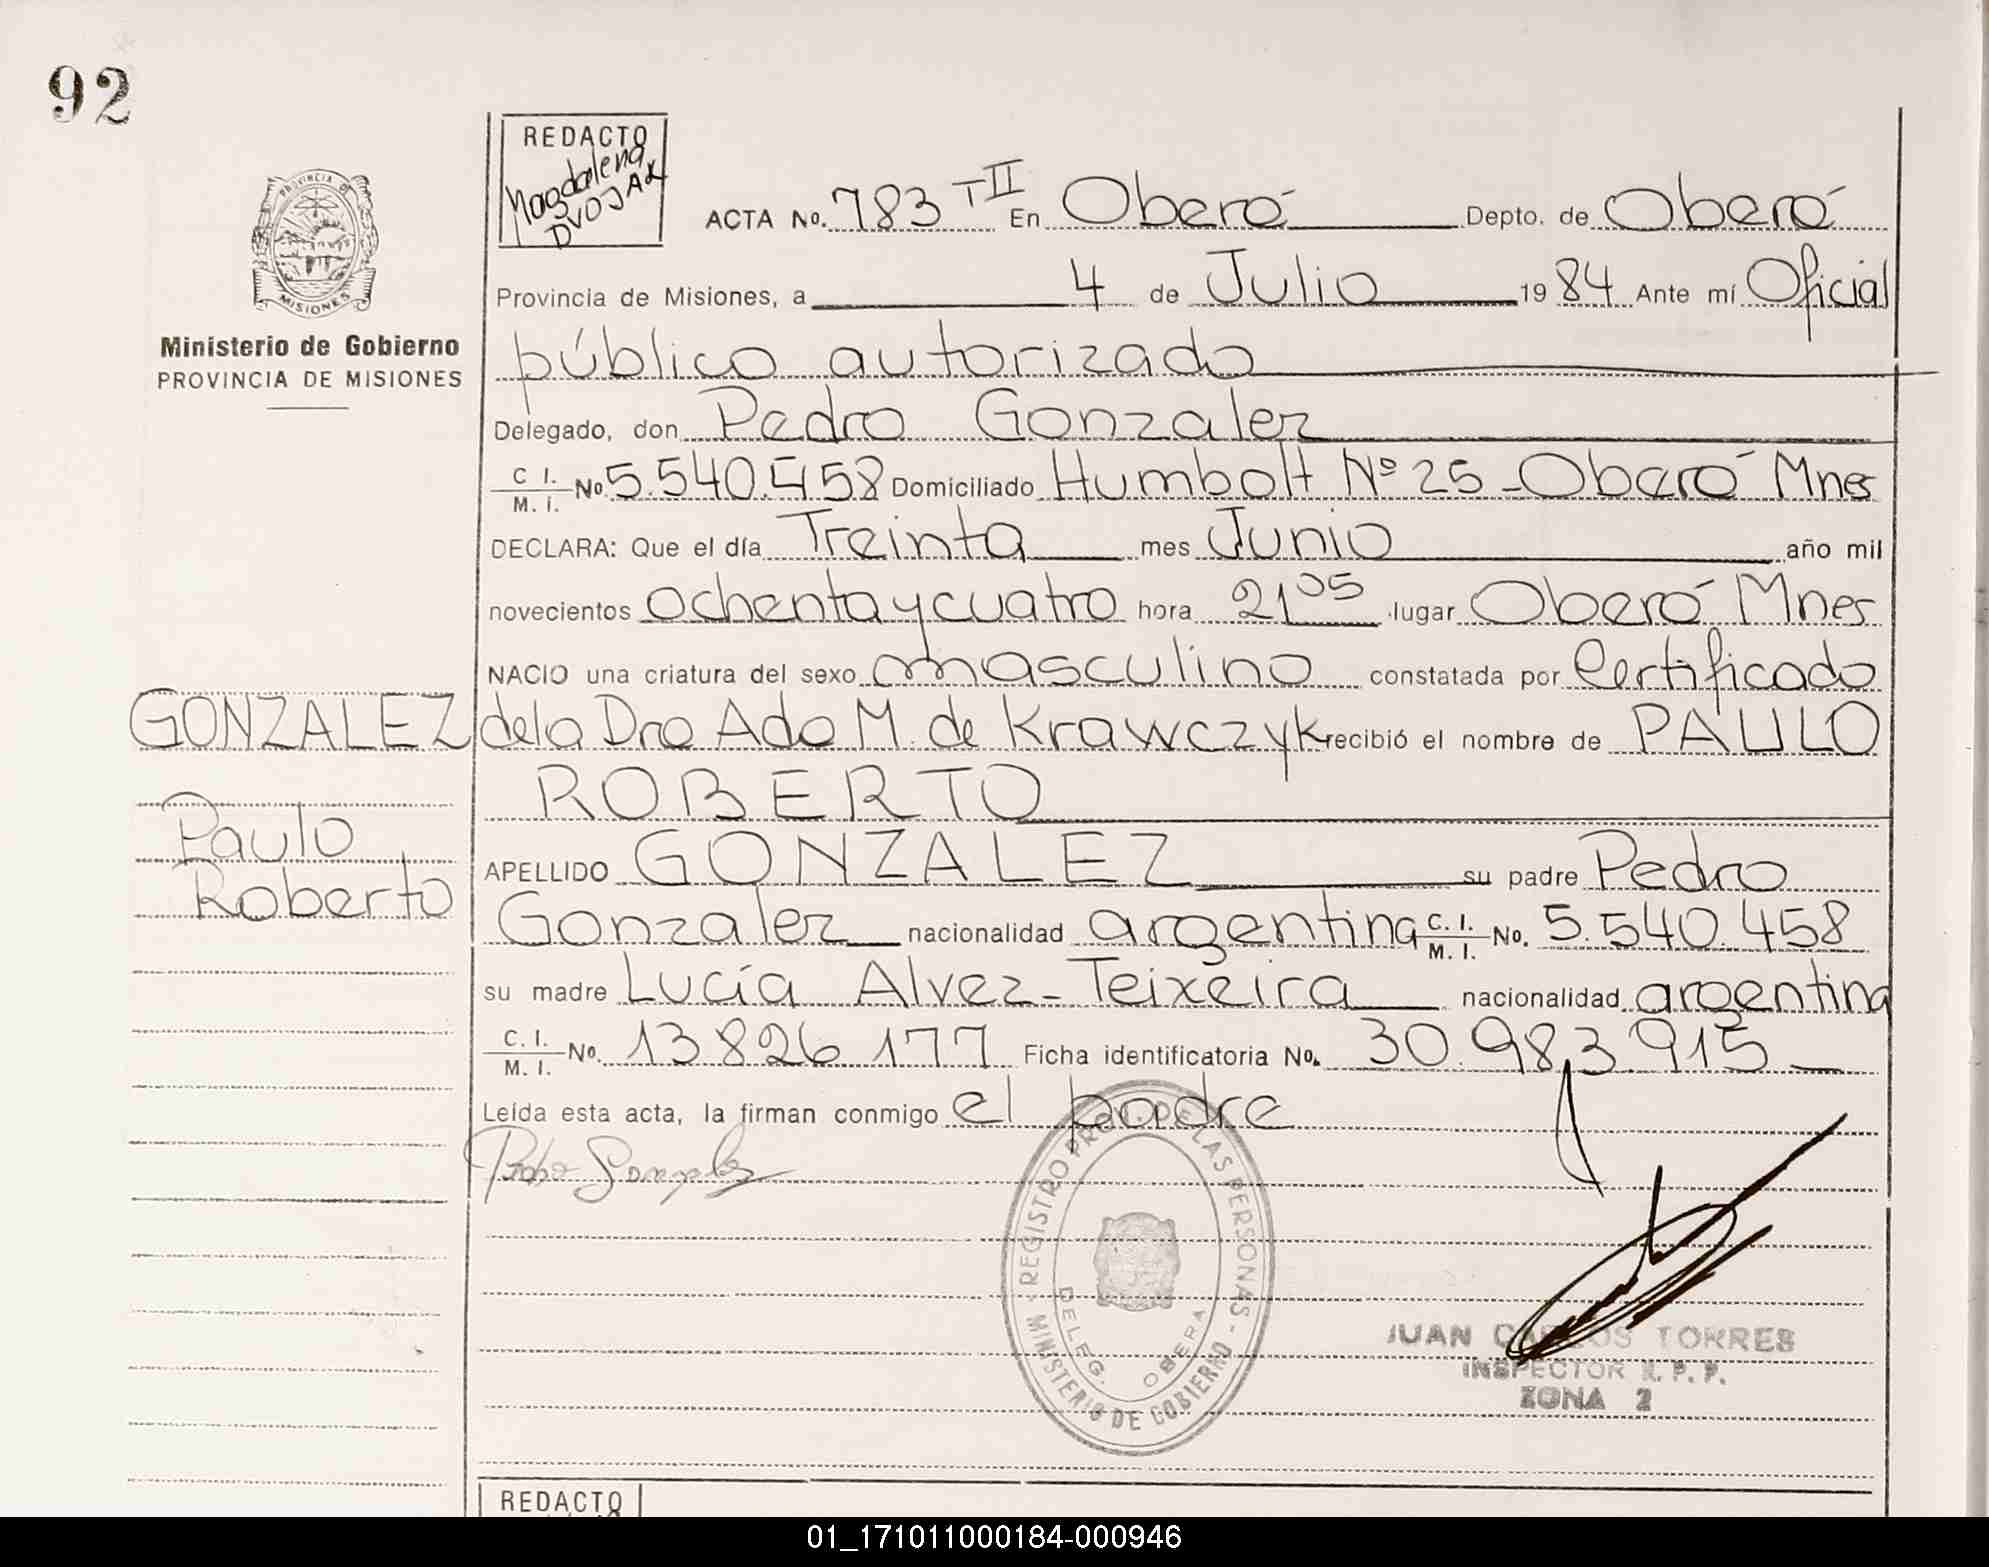 92
REDACTO
Magdalena
DVOJAK
PROVINCIA D
MISIONES
Ministerio de Gobierno
PROVINCIA DE MISIONES
ACTA No. 783 TII En Oberá Depto. de Oberá
Provincia de Misiones, a 4 de Julio 1984 Ante mí Oficial
público autorizado
Delegado, don Pedro Gonzalez
C I. M. I. No 5.540.458 Domiciliado Humbolt Nº 25 - Oberá Mnes
DECLARA: Que el día Treinta mes Junio año mil
novecientos ochenta y cuatro hora 21 05 lugar Oberá Mnes
NACIO una criatura del sexo masculino constatada por Certificado
GONZALEZ de la Dra Ada M. de Krawczyk recibió el nombre de PAULO
ROBERTO
Paulo
APELLIDO GONZALEZ su padre Pedro
Roberto
Gonzalez nacionalidad argentina C. I. M. I. No. 5.540.458
su madre Lucía Alvez-Teixeira nacionalidad argentina
C. I. M. I. No. 13 826 177 Ficha identificatoria No. 30.983.915
Leída esta acta, la firman conmigo el padre
Pedro Gonzalez
REGISTRO PROV. DE LAS PERSONAS - MINISTERIO DE GOBIERNO -
DELEG. OBERA
JUAN CARLOS TORRES
INSPECTOR R. P. P.
ZONA 2
REDACTO
01_171011000184-000946